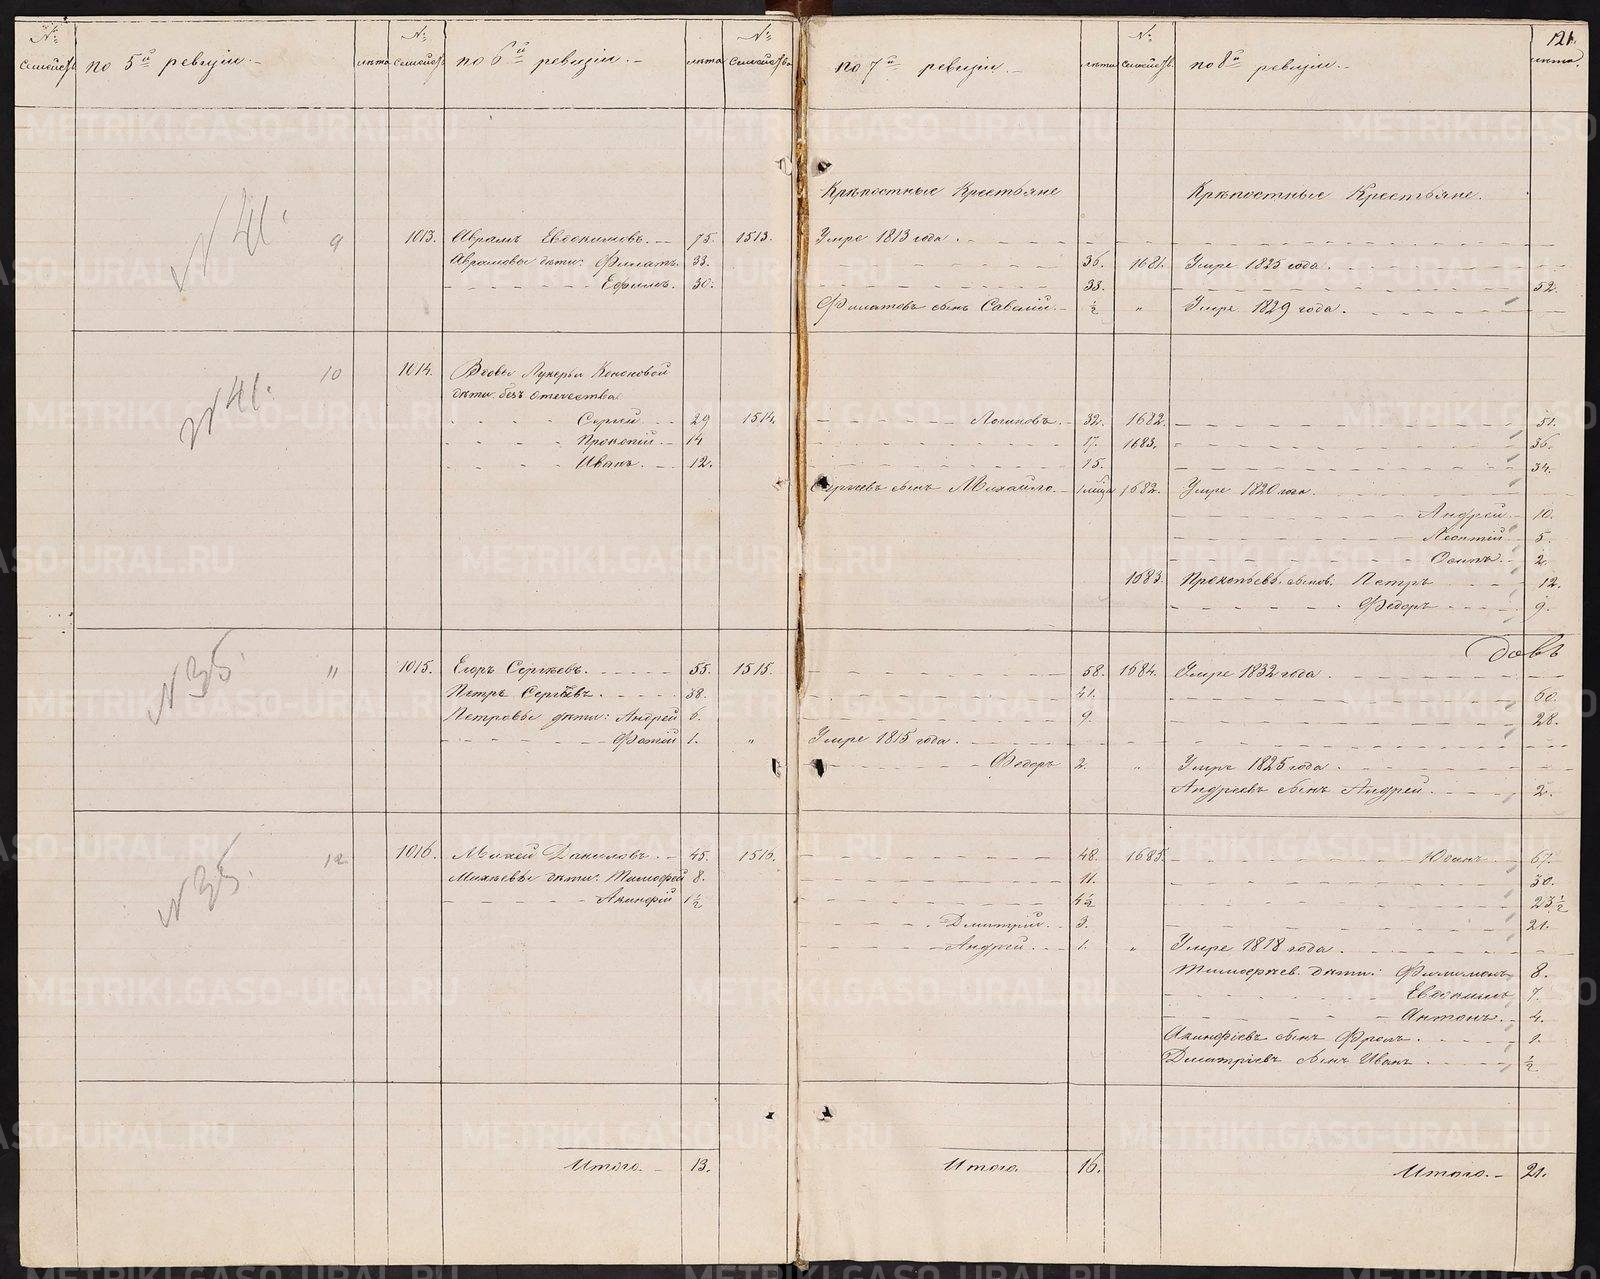 № семействъ по 5й ревизіи. лѣта № семействъ по 6й ревизіи. лѣта № семействъ по 7й ревизіи. лѣта № семействъ по 8й ревизіи. лѣта.
121.
Крѣпостные Крестьяне Крѣпостные Крестьяне.
N 41. 9 1013. Аврамъ Евдокимовъ. 75. 1513. Умре 1813 года.
Аврамовы дѣти: Филатъ. 33. 36. 1681. Умре 1825 года.
Ефимъ. 30. 33. 52.
Филатовъ сынъ Савелій. ½ „ Умре 1829 года.
N 41. 10 1014. Вдовы Лукерьи Кононовой
дѣти безъ отечества
Сергій 29 1514. Логиновъ. 32. 1682. 51.
Прокопій 14 17. 1683. 36.
Иванъ. 12. 15. 34.
Сергѣевъ сынъ Михайло 1 мѣся 1682. Умре 1820 года.
Андрей 10.
Леонтій 5.
Осипъ. 2.
1683. Прокопьевъ сынов. Петръ 12.
Федоръ 9.
довъ
N 35. 11 1015. Егоръ Сергѣевъ. 55. 1515. 58. 1684. Умре 1832 года.
Петръ Сергѣевъ. 38. 41. 60.
Петровы дѣти: Андрей 6. 9. 28.
Фотій 1. „ Умре 1815 года.
Федоръ 2. „ Умре 1825 года.
Андреевъ сынъ Андрей. 2.
N 35. 12 1016. Михей Даниловъ. 45. 1516. 48. 1685. Юдинъ 67.
Михѣевы дѣти: Тимофей 8. 11. 30.
Акинфій 1½ 4½ 23½
Дмитрій. 3. 21.
Андрей. 1. „ Умре 1818 года.
Тимофеев. дѣти: Филимонъ 8.
Евдокимъ 7.
Антонъ. 4.
Акинфіевъ сынъ Фролъ. 1.
Дмитріевъ сынъ Иванъ ½
Итого. 13. Итого. 16. Итого. 21.
METRIKI.GASO-URAL.RU